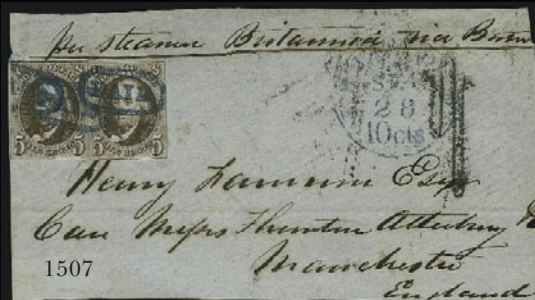 per steamer Britannia via Boston
5 5
28
10cts
5 5 5 5
Henry Esqr
Care Messrs Thornton Atterbury
Manchester
England
1507